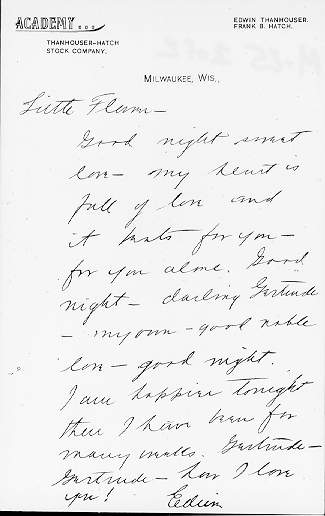 ACADEMY...
THANHOUSER-HATCH
STOCK COMPANY.
EDWIN THANHOUSER.
FRANK B. HATCH.
MILWAUKEE, WIS.,
Little Flower—
Good night sweet
love— my heart is
full of love and
it beats for you—
for you alone. Good
night— darling Gertrude
— my own— good noble
love— good night.
I am happier tonight
then I have been for
many weeks. Gertrude—
Gertrude— how I love
you! Edwin